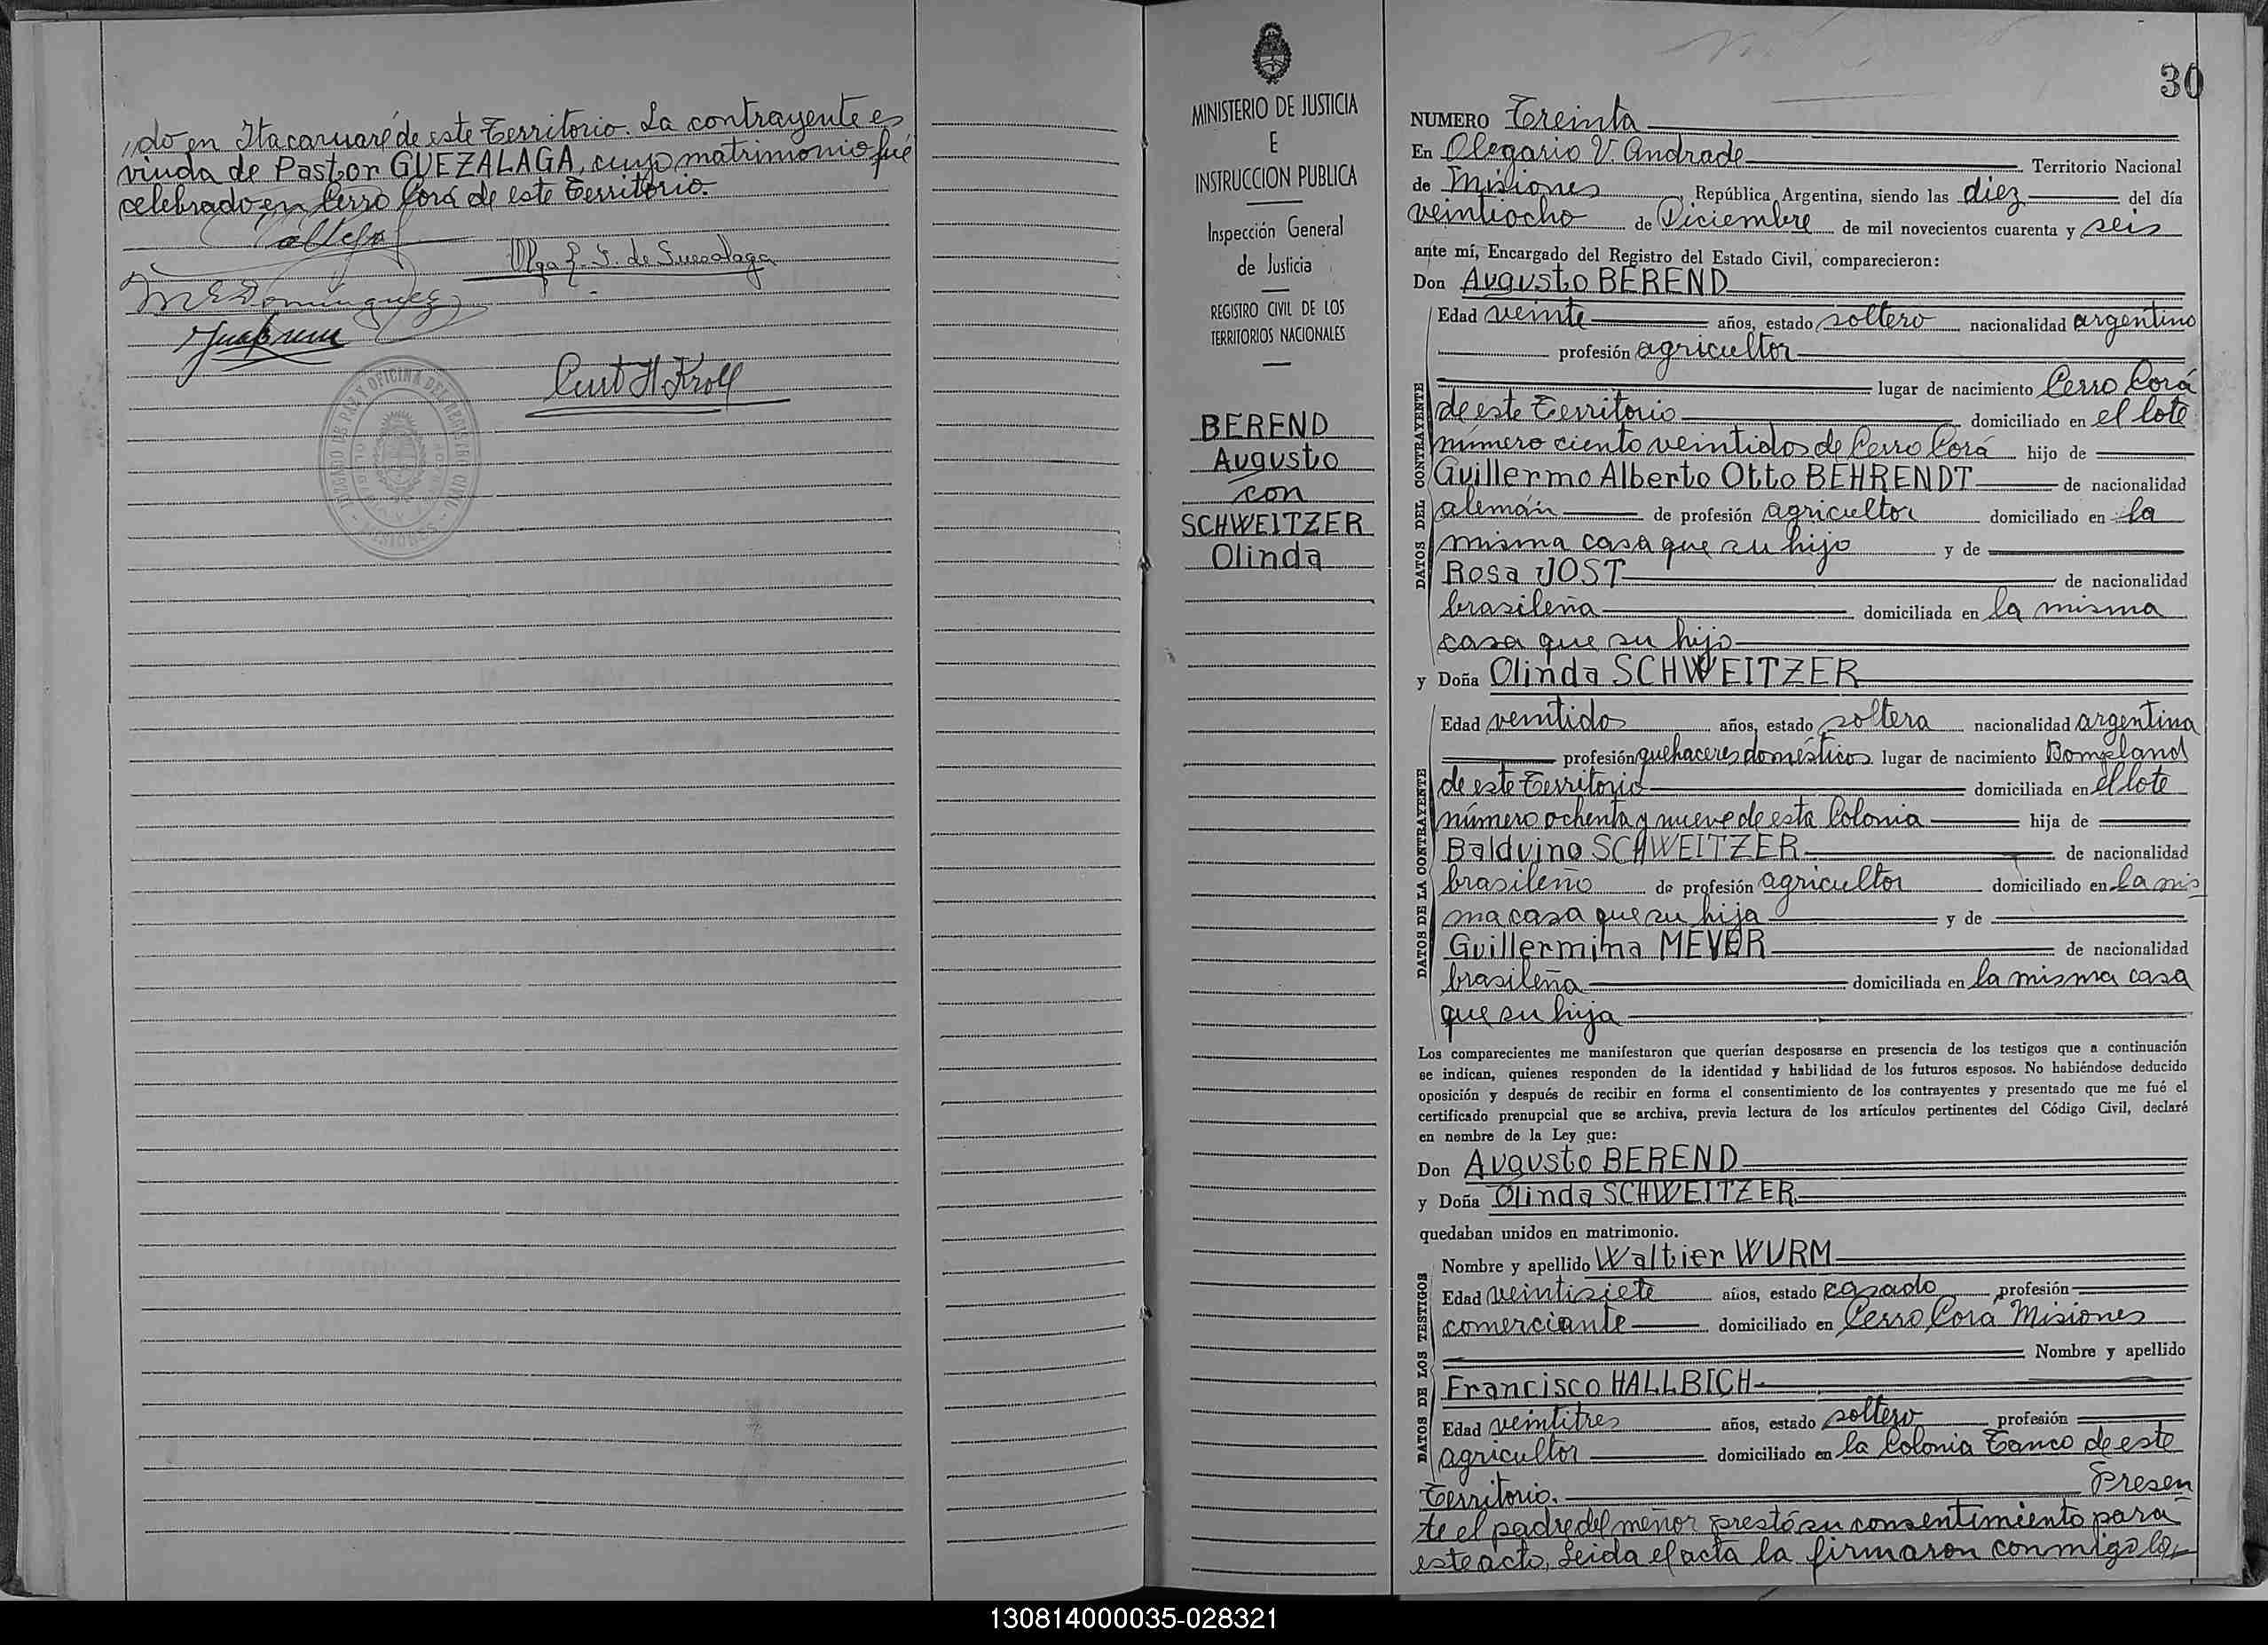 „do en Itacaruaré de este Territorio. La contrayente es
viuda de Pastor GUEZALAGA, cuyo matrimonio fué
celebrado en Cerro Corá de este Territorio.
Vallejo
M E Dominguez
Curt H. Kroll
JUZGADO DE PAZ Y OFICINA DEL REGISTRO CIVIL
MISIONES
MINISTERIO DE JUSTICIA
E
INSTRUCCION PUBLICA
Inspección General
de Justicia
REGISTRO CIVIL DE LOS
TERRITORIOS NACIONALES
BEREND
Augusto
con
SCHWEITZER
Olinda
30
NUMERO Treinta
En Olegario V. Andrade Territorio Nacional
de Misiones República Argentina, siendo las diez del día
veintiocho de Diciembre de mil novecientos cuarenta y seis
ante mí, Encargado del Registro del Estado Civil, comparecieron:
Don Augusto BEREND
DATOS DEL CONTRAYENTE
Edad veinte años, estado soltero nacionalidad argentino
profesión agricultor
lugar de nacimiento Cerro Corá
de este Territorio domiciliado en el lote
número ciento veintidos de Cerro Corá hijo de
Guillermo Alberto Otto BEHRENDT de nacionalidad
alemán de profesión agricultor domiciliado en la
misma casa que su hijo y de
Rosa JOST de nacionalidad
brasileña domiciliada en la misma
casa que su hijo
y Doña Olinda SCHWEITZER
DATOS DE LA CONTRAYENTE
Edad ventidos años, estado soltera nacionalidad argentina
profesión quehaceres domésticos lugar de nacimiento Bompland
de este Territorio domiciliada en el lote
número ochenta y nueve de esta Colonia hija de
Balduino SCHWEITZER de nacionalidad
brasileño de profesión agricultor domiciliado en la mis
ma casa que su hija y de
Guillermina MEYER de nacionalidad
brasileña domiciliada en la misma casa
que su hija
Los comparecientes me manifestaron que querían desposarse en presencia de los testigos que a continuación
se indican, quienes responden de la identidad y habilidad de los futuros esposos. No habiéndose deducido
oposición y después de recibir en forma el consentimiento de los contrayentes y presentado que me fué el
certificado prenupcial que se archiva, previa lectura de los artículos pertinentes del Código Civil, declaré
en nombre de la Ley que:
Don Augusto BEREND
y Doña Olinda SCHWEITZER
quedaban unidos en matrimonio.
DATOS DE LOS TESTIGOS
Nombre y apellido Waltier WURM
Edad veintisiete años, estado casado profesión
comerciante domiciliado en Cerro Corá Misiones
Nombre y apellido
Francisco HALLBICH
Edad veintitres años, estado soltero profesión
agricultor domiciliado en la Colonia Tanco de este
Territorio. Presen
te el padre del menor prestó su consentimiento para
este acto, Leida el acta la firmaron conmigo los
130814000035-028321